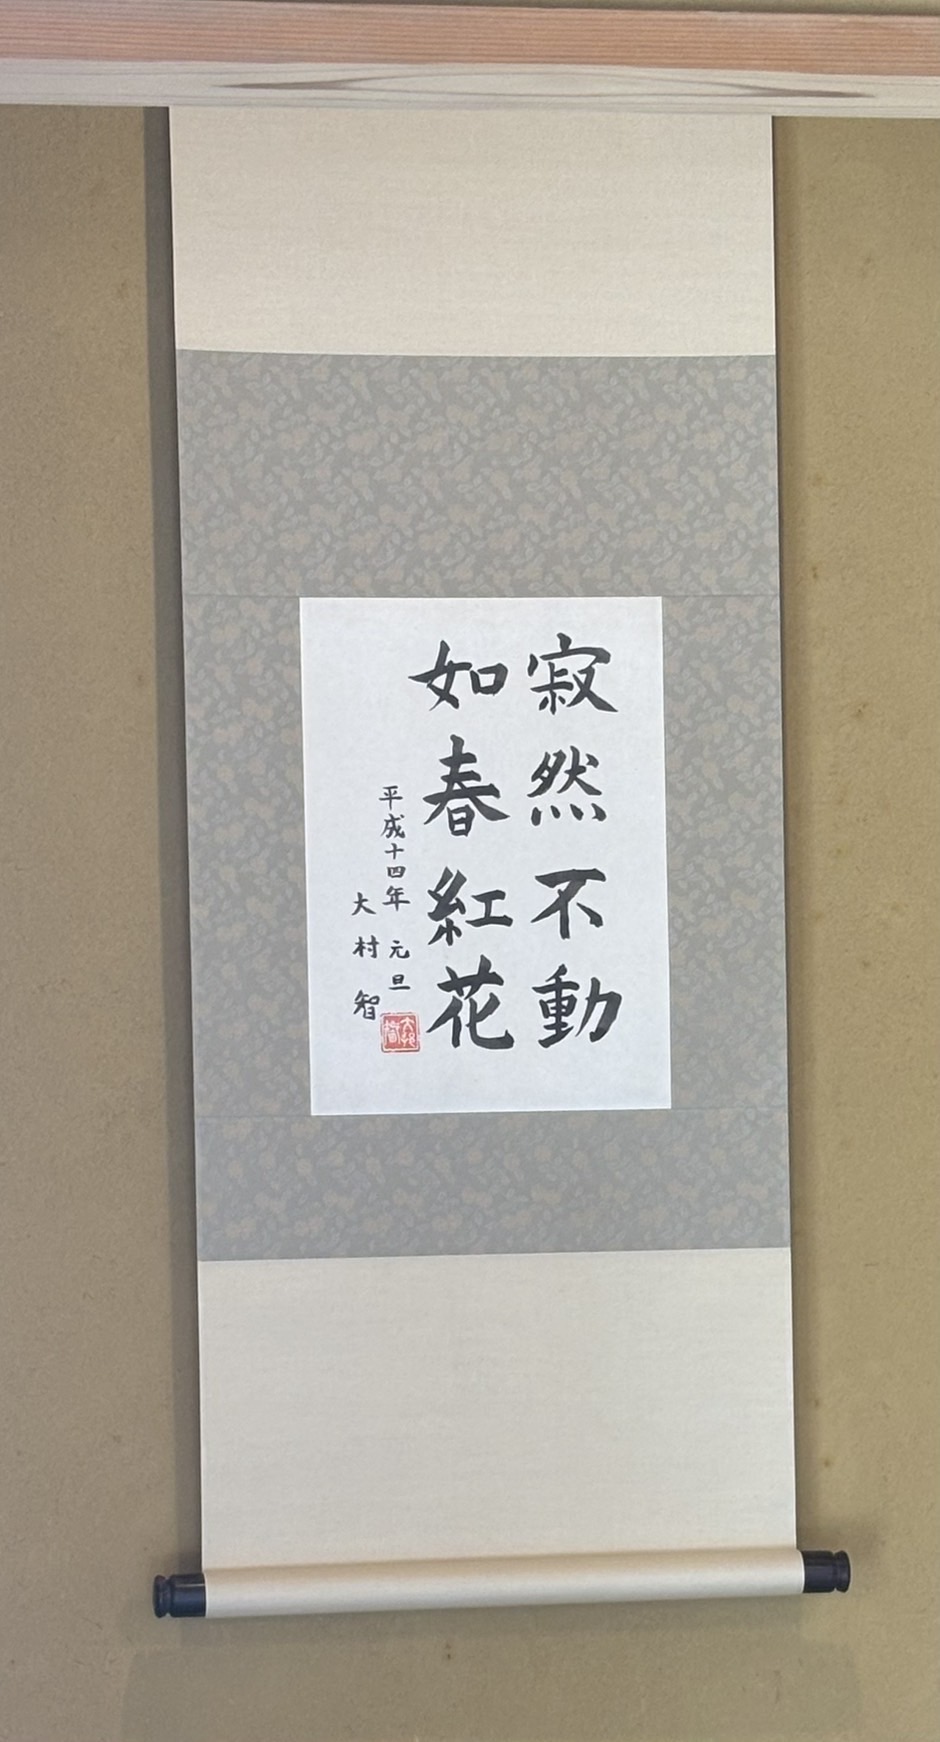 寂然不動
如春紅花
平成十四年 元旦
大村智